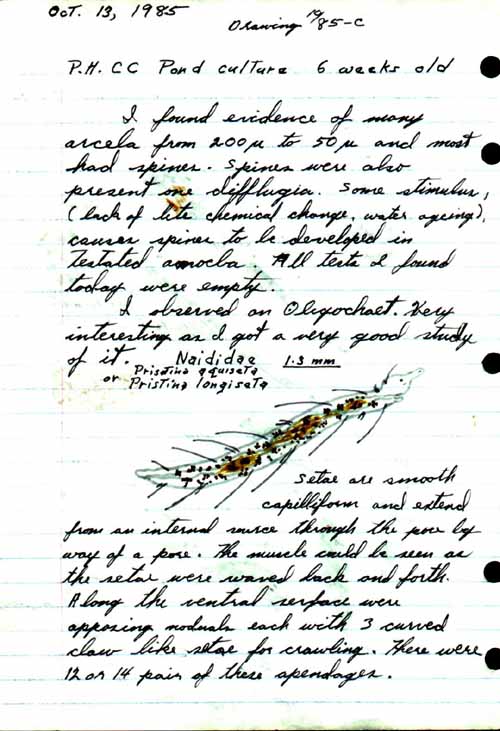 Oct. 13, 1985
Drawing 10/85-C
P.H. CC Pond culture 6 weeks old
I found evidence of many
arcela from 200µ to 50µ and most
had spines. Spines were also
present one difflugia. Some stimulus,
(lack of lite chemical change, water ageing),
causes spines to be developed in
Testated amoeba. All tests I found
today were empty.
I observed an Oligochaet. Very
interesting as I got a very good study
of it. Naididae 1.3 mm
Pristina aquiseta
or Pristina longiseta
Setae are smooth
capilliform and extend
from an internal source through the
way of a pore. The muscle could be seen as
the setae were waved back and forth.
Along the ventral serface were
opposing moduals each with 3 curved
claw like setae for crawling. There were
12 or 14 pair of these apendages.